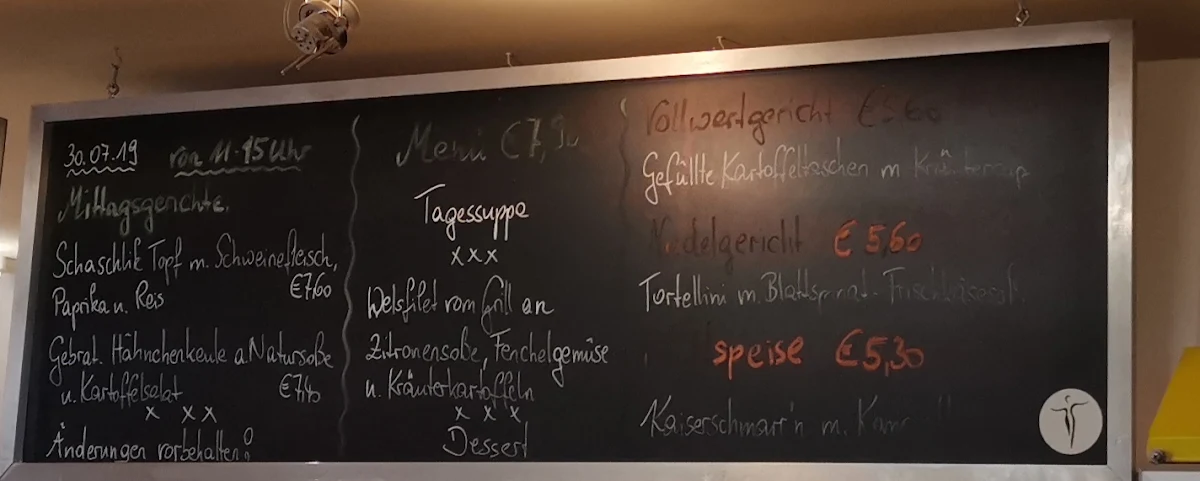 30.07.19 von 11-15 Uhr
Mittagsgerichte.
Schaschlik Topf m. Schweinefleisch,
Paprika u. Reis €7,60
Gebrat. Hähnchenkeule a. Natursoße
u. Kartoffelsalat €7,40
x x x
Änderungen vorbehalten!
Menü
Tagessuppe
x x x
Welsfilet vom Grill an
Zitronensoße, Fenchelgemüse
u. Kräuterkartoffeln
x x x
Dessert
Vollwertgericht €5.60
Gefüllte Kartoffeltaschen m
Nudelgericht €5,60
Tortellini m. Blattspinat-
speise €5,30
Kaiserschmarr'n m.